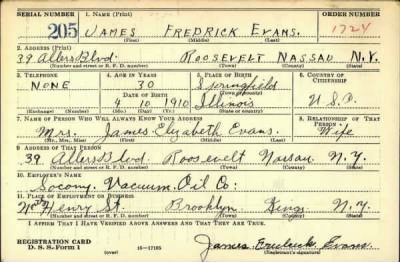 SERIAL NUMBER 1. NAME (Print) ORDER NUMBER
205 JAMES FREDRICK EVANS. 1724
(First) (Middle) (Last)
2. ADDRESS (Print)
39 Allers Blvd. ROOSEVELT NASSAU N.Y.
(Number and street or R. F. D. number) (Town) (County) (State)
3. TELEPHONE 4. AGE IN YEARS 5. PLACE OF BIRTH 6. COUNTRY OF CITIZENSHIP
NONE 30 Springfield
DATE OF BIRTH (Town or county)
4 10 1910 Illinois U.S.A.
(Exchange) (Number) (Mo.) (Day) (Yr.) (State or country)
7. NAME OF PERSON WHO WILL ALWAYS KNOW YOUR ADDRESS 8. RELATIONSHIP OF THAT PERSON
Mrs. James Elizabeth Evans. Wife
(Mr., Mrs., Miss) (First) (Middle) (Last)
9. ADDRESS OF THAT PERSON
39 Allers Blvd. Roosevelt Nassau N.Y.
(Number and street or R. F. D. number) (Town) (County) (State)
10. EMPLOYER'S NAME
Socony Vacuum Oil Co:
11. PLACE OF EMPLOYMENT OR BUSINESS
Henry St. Brooklyn Kings N.Y.
(Number and street or R. F. D. number) (Town) (County) (State)
I AFFIRM THAT I HAVE VERIFIED ABOVE ANSWERS AND THAT THEY ARE TRUE.
REGISTRATION CARD
D. S. S. Form 1 (over) 16—17105 James Fredrick Evans.
(Registrant's signature)